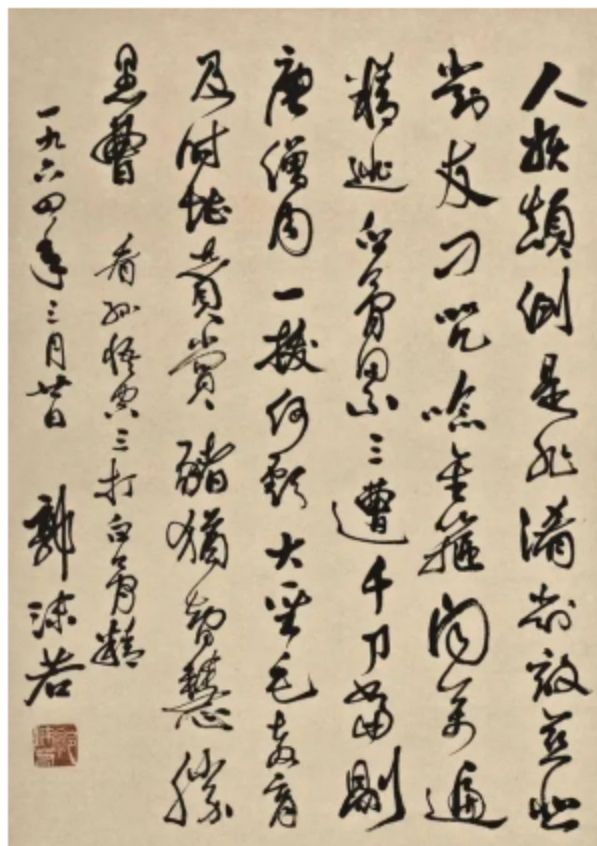 人妖颠倒是非淆對敵慈悲
對友刁咒唸金箍闻萬遍
精逃白骨累三遭千刀當剮
唐僧肉一拔何虧大聖毛教育
及时堪賛賞豬猶智慧勝
愚曹 看孙悟空三打白骨精
一九六四年三月廿日 郭沫若